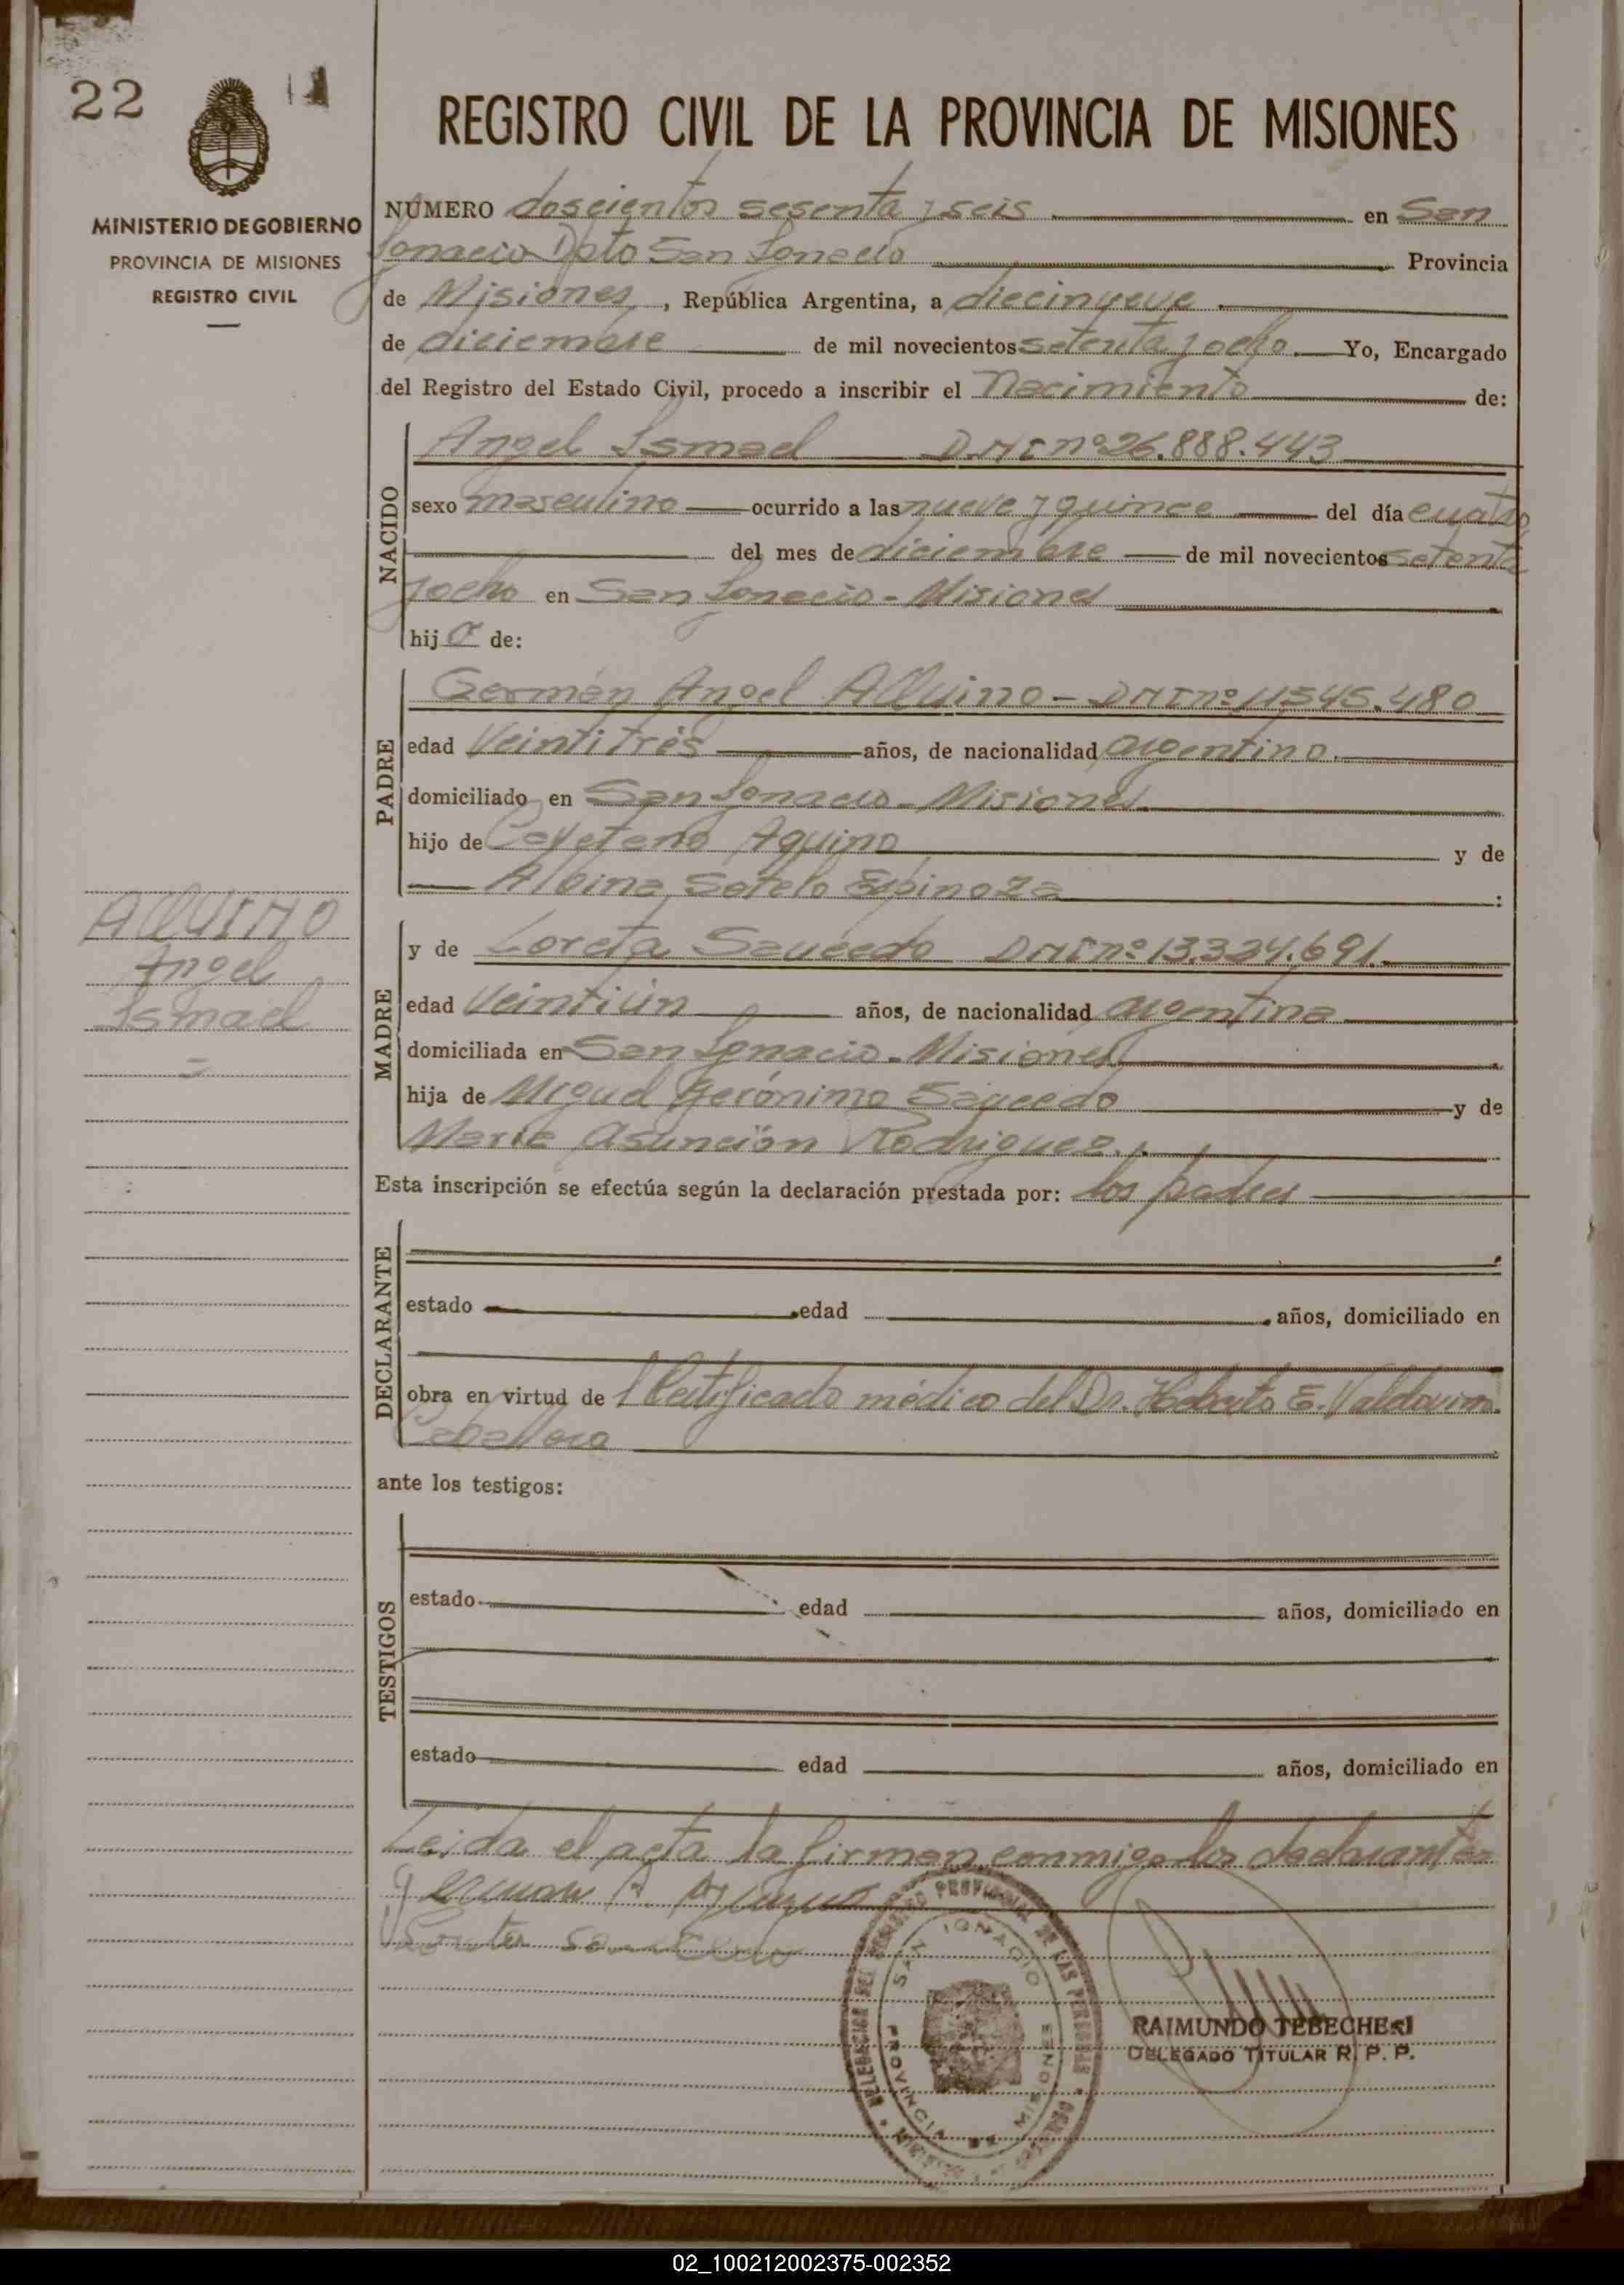 22
REGISTRO CIVIL DE LA PROVINCIA DE MISIONES
MINISTERIO DE GOBIERNO
PROVINCIA DE MISIONES
REGISTRO CIVIL
NÚMERO doscientos sesenta y seis en San
Ignacio Dpto San Ignacio Provincia
de Misiones, República Argentina, a diecinueve
de diciembre de mil novecientos setenta y ocho. Yo, Encargado
del Registro del Estado Civil, procedo a inscribir el Nacimiento de:
NACIDO
Angel Ismael D.N.I nº 26.888.443
sexo masculino ocurrido a las nueve y quince del día cuatro
del mes de diciembre de mil novecientos setenta
y ocho en San Ignacio - Misiones
hijo de:
PADRE
Germán Angel AQuino - DNI nº 11545.480
edad Veintitrés años, de nacionalidad argentino.
domiciliado en San Ignacio - Misiones.
hijo de Cayetano Aquino y de
Albina Sotelo Espinoza :
AQUINO
Angel
Ismael
MADRE
y de Loreta Saucedo DNI nº 13.334.691.
edad Veintiún años, de nacionalidad argentina
domiciliada en San Ignacio - Misiones
hija de Miguel Gerónimo Saucedo y de
María Asunción Rodriguez.
Esta inscripción se efectúa según la declaración prestada por: los padres
DECLARANTE
estado edad años, domiciliado en
obra en virtud de Certificado médico del Dr. Roberto E. Valdovino
Caballero
ante los testigos:
TESTIGOS
estado edad años, domiciliado en
estado edad años, domiciliado en
Leida el acta la firman conmigo los declarantes
German A. Aquino
Loreta Saucedo
SAN IGNACIO
PROVINCIA DE MISIONES
RAIMUNDO TEBECHERI
DELEGADO TITULAR R. P. P.
02_100212002375-002352